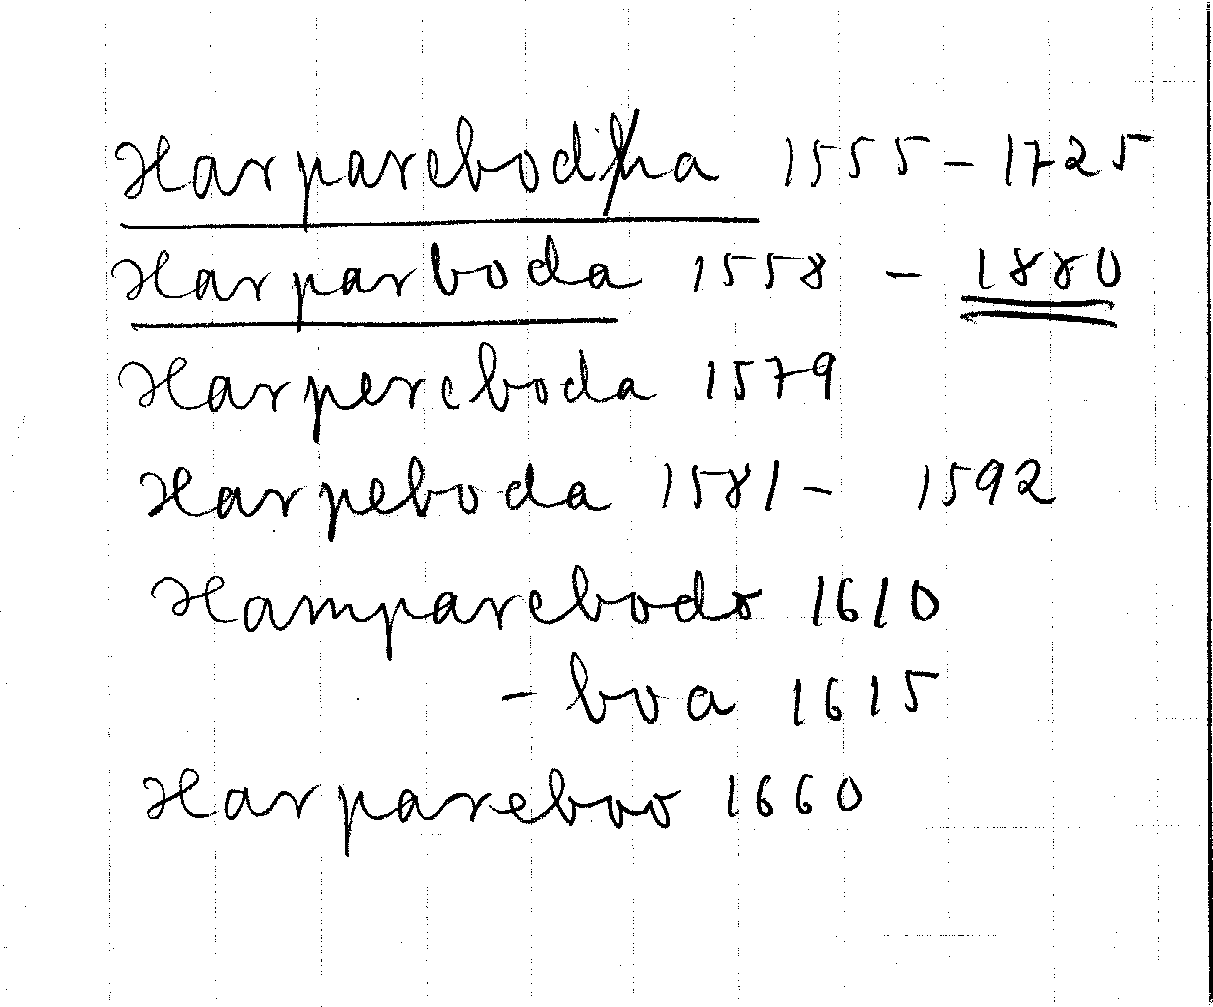 Harparebodha 1555-1725
Harparboda 1558 - 1880
Harpereboda 1579
Harpeboda 1581 - 1592
Hamparebodo 1610
- boa 1615
Harpareboo 1660